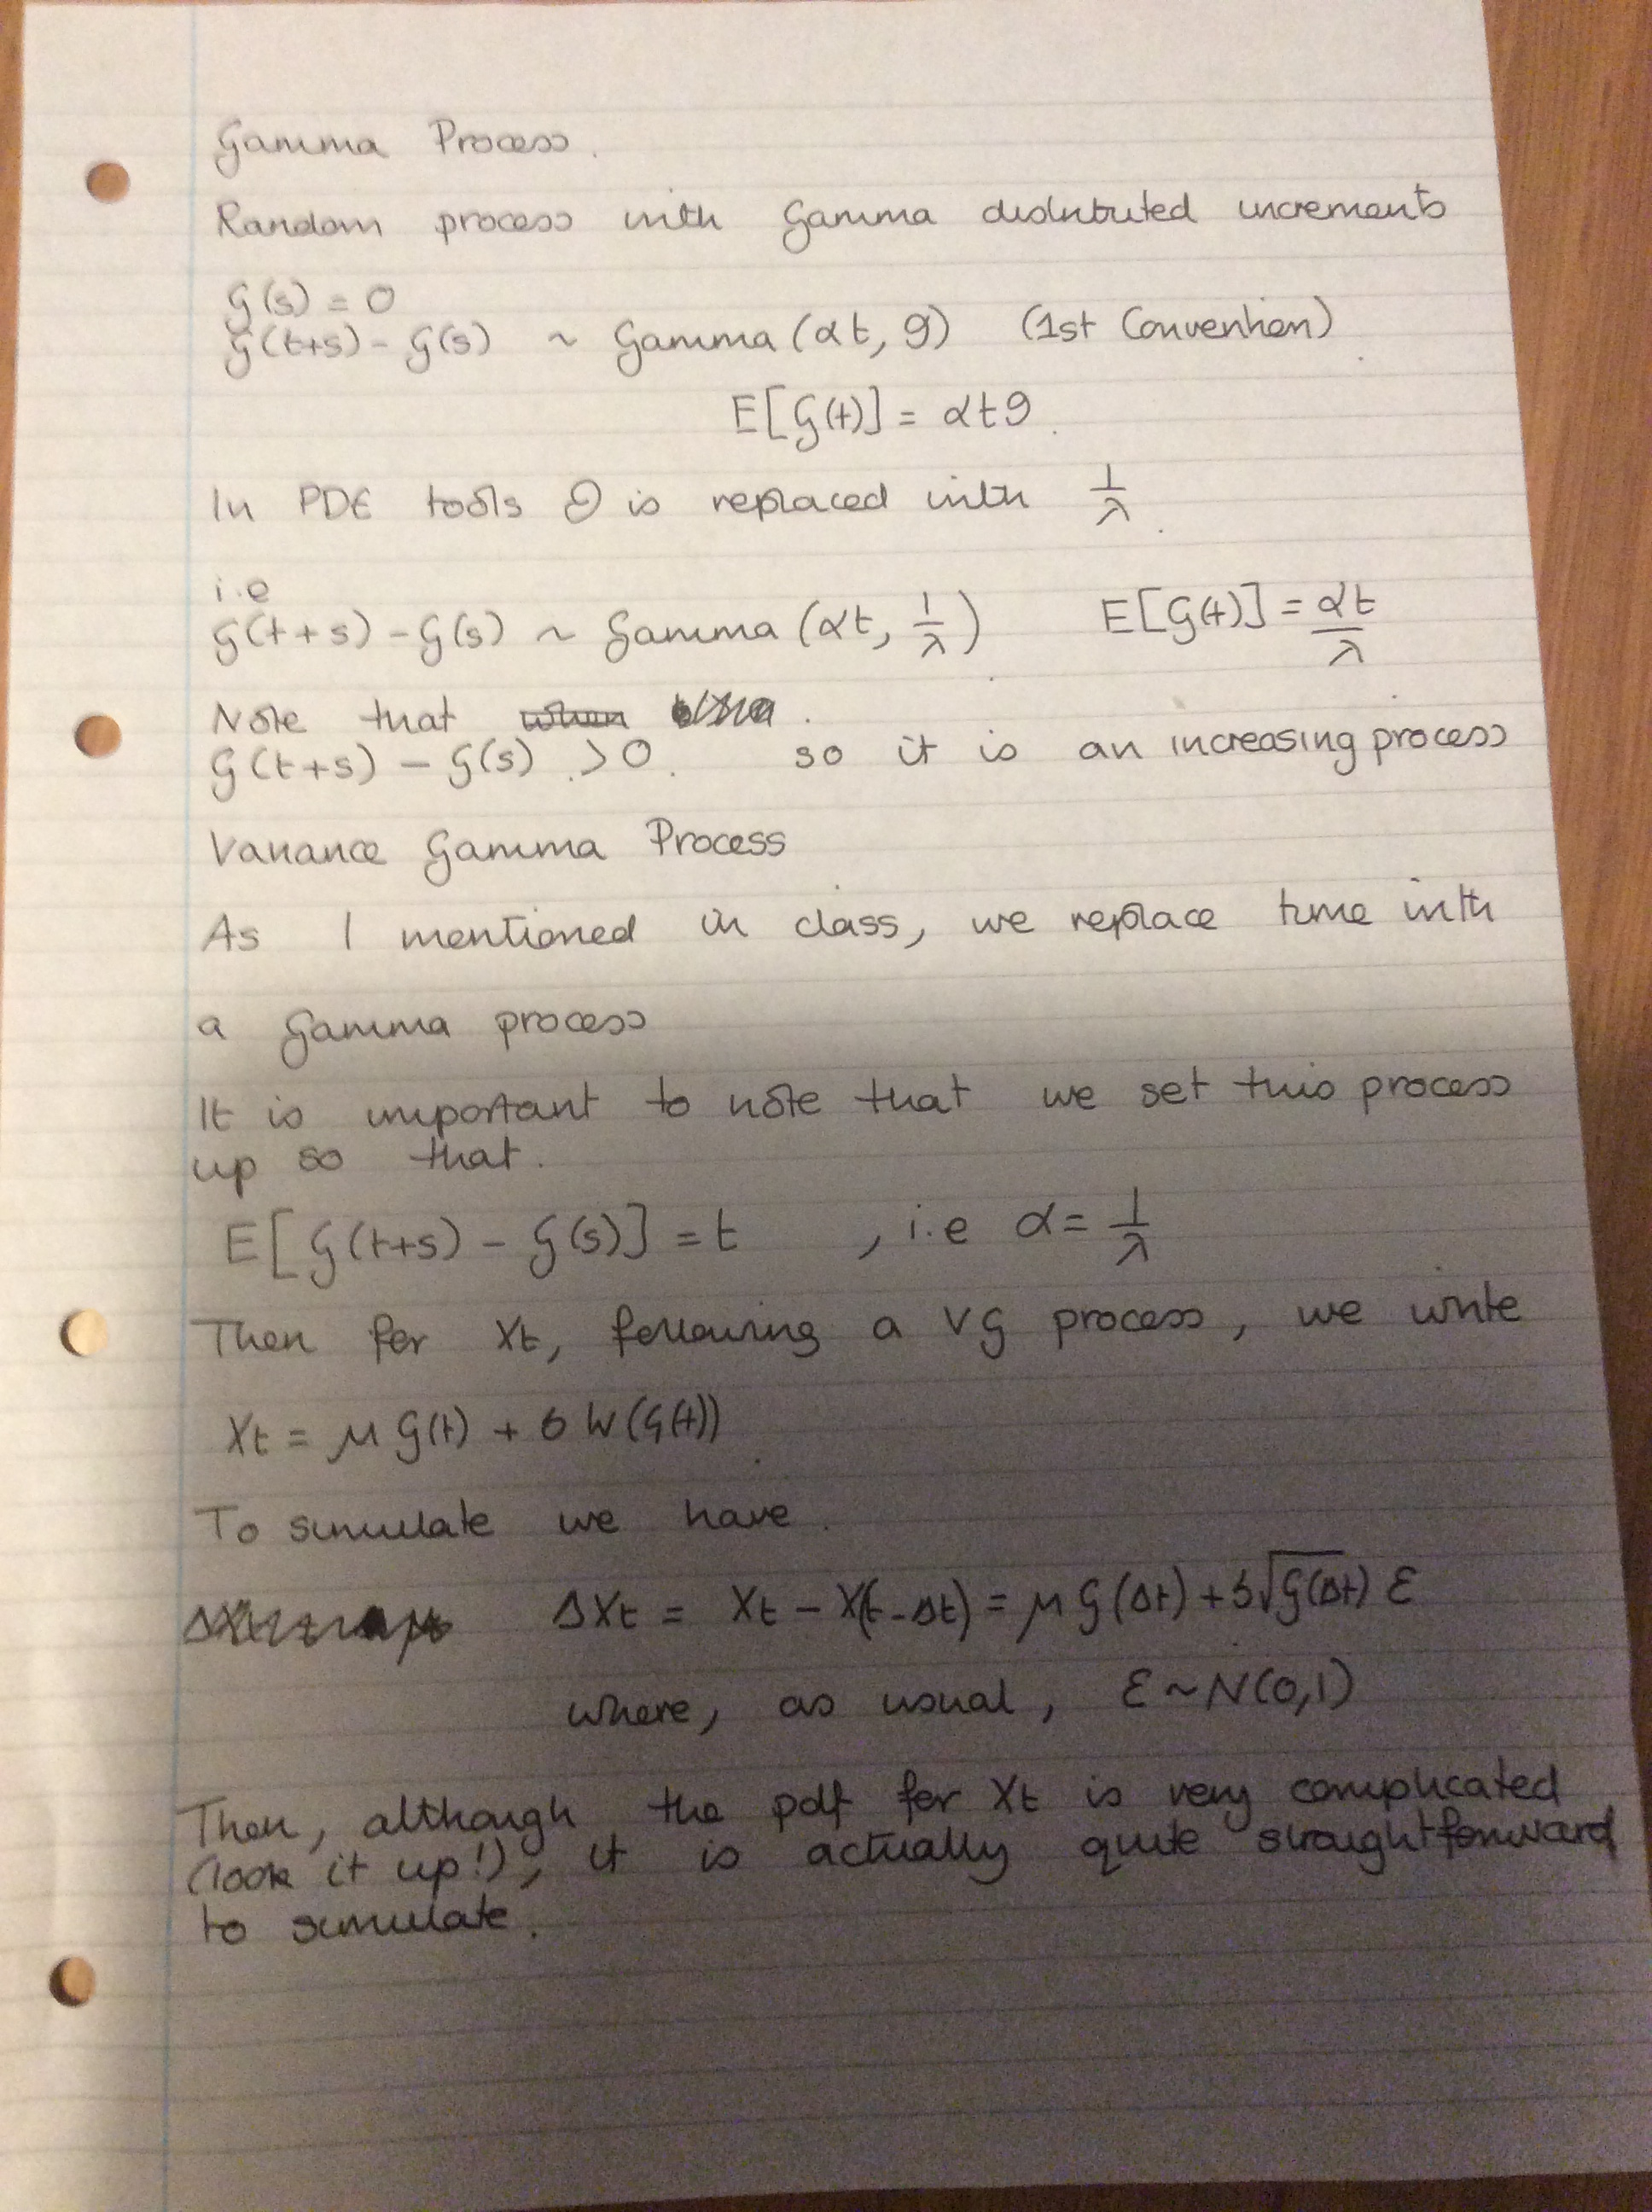 Gamma Process.
Random process with Gamma distributed increments
G(s) = 0
G(t+s) - G(s) ~ Gamma(αt, θ) (1st Convention)
E[G(t)] = αtθ.
In PDE tools θ is replaced with 1/λ.
i.e
G(t+s) - G(s) ~ Gamma(αt, 1/λ) E[G(t)] = αt/λ
Note that when
G(t+s) - G(s) > 0. so it is an increasing process
Variance Gamma Process
As I mentioned in class, we replace time with
a Gamma process
It is important to note that we set this process
up so that.
E[G(t+s) - G(s)] = t , i.e α = 1/λ
Then for Xt, following a VG process, we write
Xt = μ G(t) + σ W(G(t))
To simulate we have.
ΔXt = Xt - X(t-Δt) = μ G(Δt) + σ√G(Δt) ε
where, as usual, ε ~ N(0,1)
Then, although the pdf for Xt is very complicated
(look it up!), it is actually quite straightforward
to simulate.